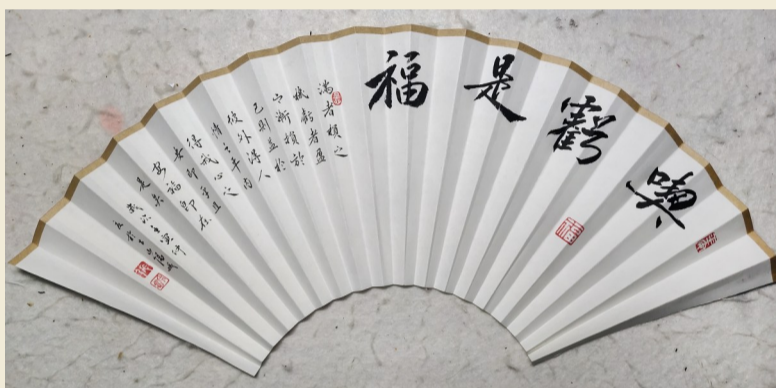 喫虧是福
滿者損之
機虧者盈
之漸損於
己則益於
彼外得人
情之平内
得我心之
安即平且
安福即在
是矣
福